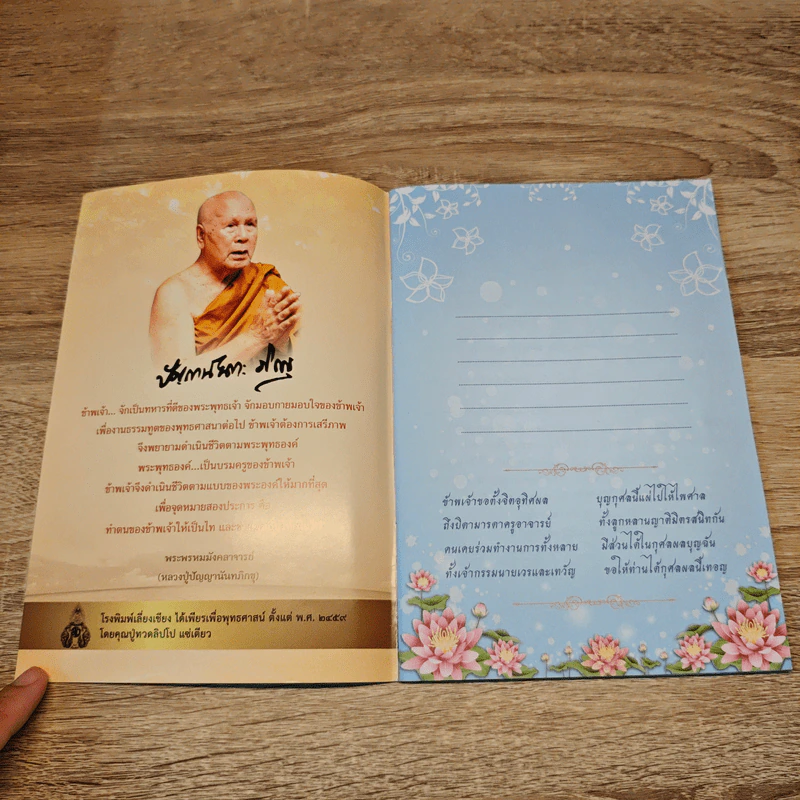 ปัญญานันทะ ภิกขุ
ข้าพเจ้า... จักเป็นทหารที่ดีของพระพุทธเจ้า จักมอบกายมอบใจของข้าพเจ้า
เพื่องานธรรมทูตของพุทธศาสนาต่อไป ข้าพเจ้าต้องการเสรีภาพ
จึงพยายามดำเนินชีวิตตามพระพุทธองค์
พระพุทธองค์...เป็นบรมครูของข้าพเจ้า
ข้าพเจ้าจึงดำเนินชีวิตตามแบบของพระองค์ให้มากที่สุด
เพื่อจุดหมายสองประการ คือ
ทำตนของข้าพเจ้าให้เป็นไท และ
พระพรหมมังคลาจารย์
(หลวงปู่ปัญญานันทภิกขุ)
โรงพิมพ์เลี่ยงเชียง ได้เพียรเพื่อพุทธศาสน์ ตั้งแต่ พ.ศ. ๒๔๕๙
โดยคุณปู่ทวดลิปโป แซ่เตียว
ข้าพเจ้าขอตั้งจิตอุทิศผล บุญกุศลนี้แผ่ไปให้ไพศาล
ถึงบิดามารดาครูอาจารย์ ทั้งลูกหลานญาติมิตรสนิทกัน
คนเคยร่วมทำงานการทั้งหลาย มีส่วนได้ในกุศลผลบุญฉัน
ทั้งเจ้ากรรมนายเวรและเทวัญ ขอให้ท่านได้กุศลผลนี้เทอญ